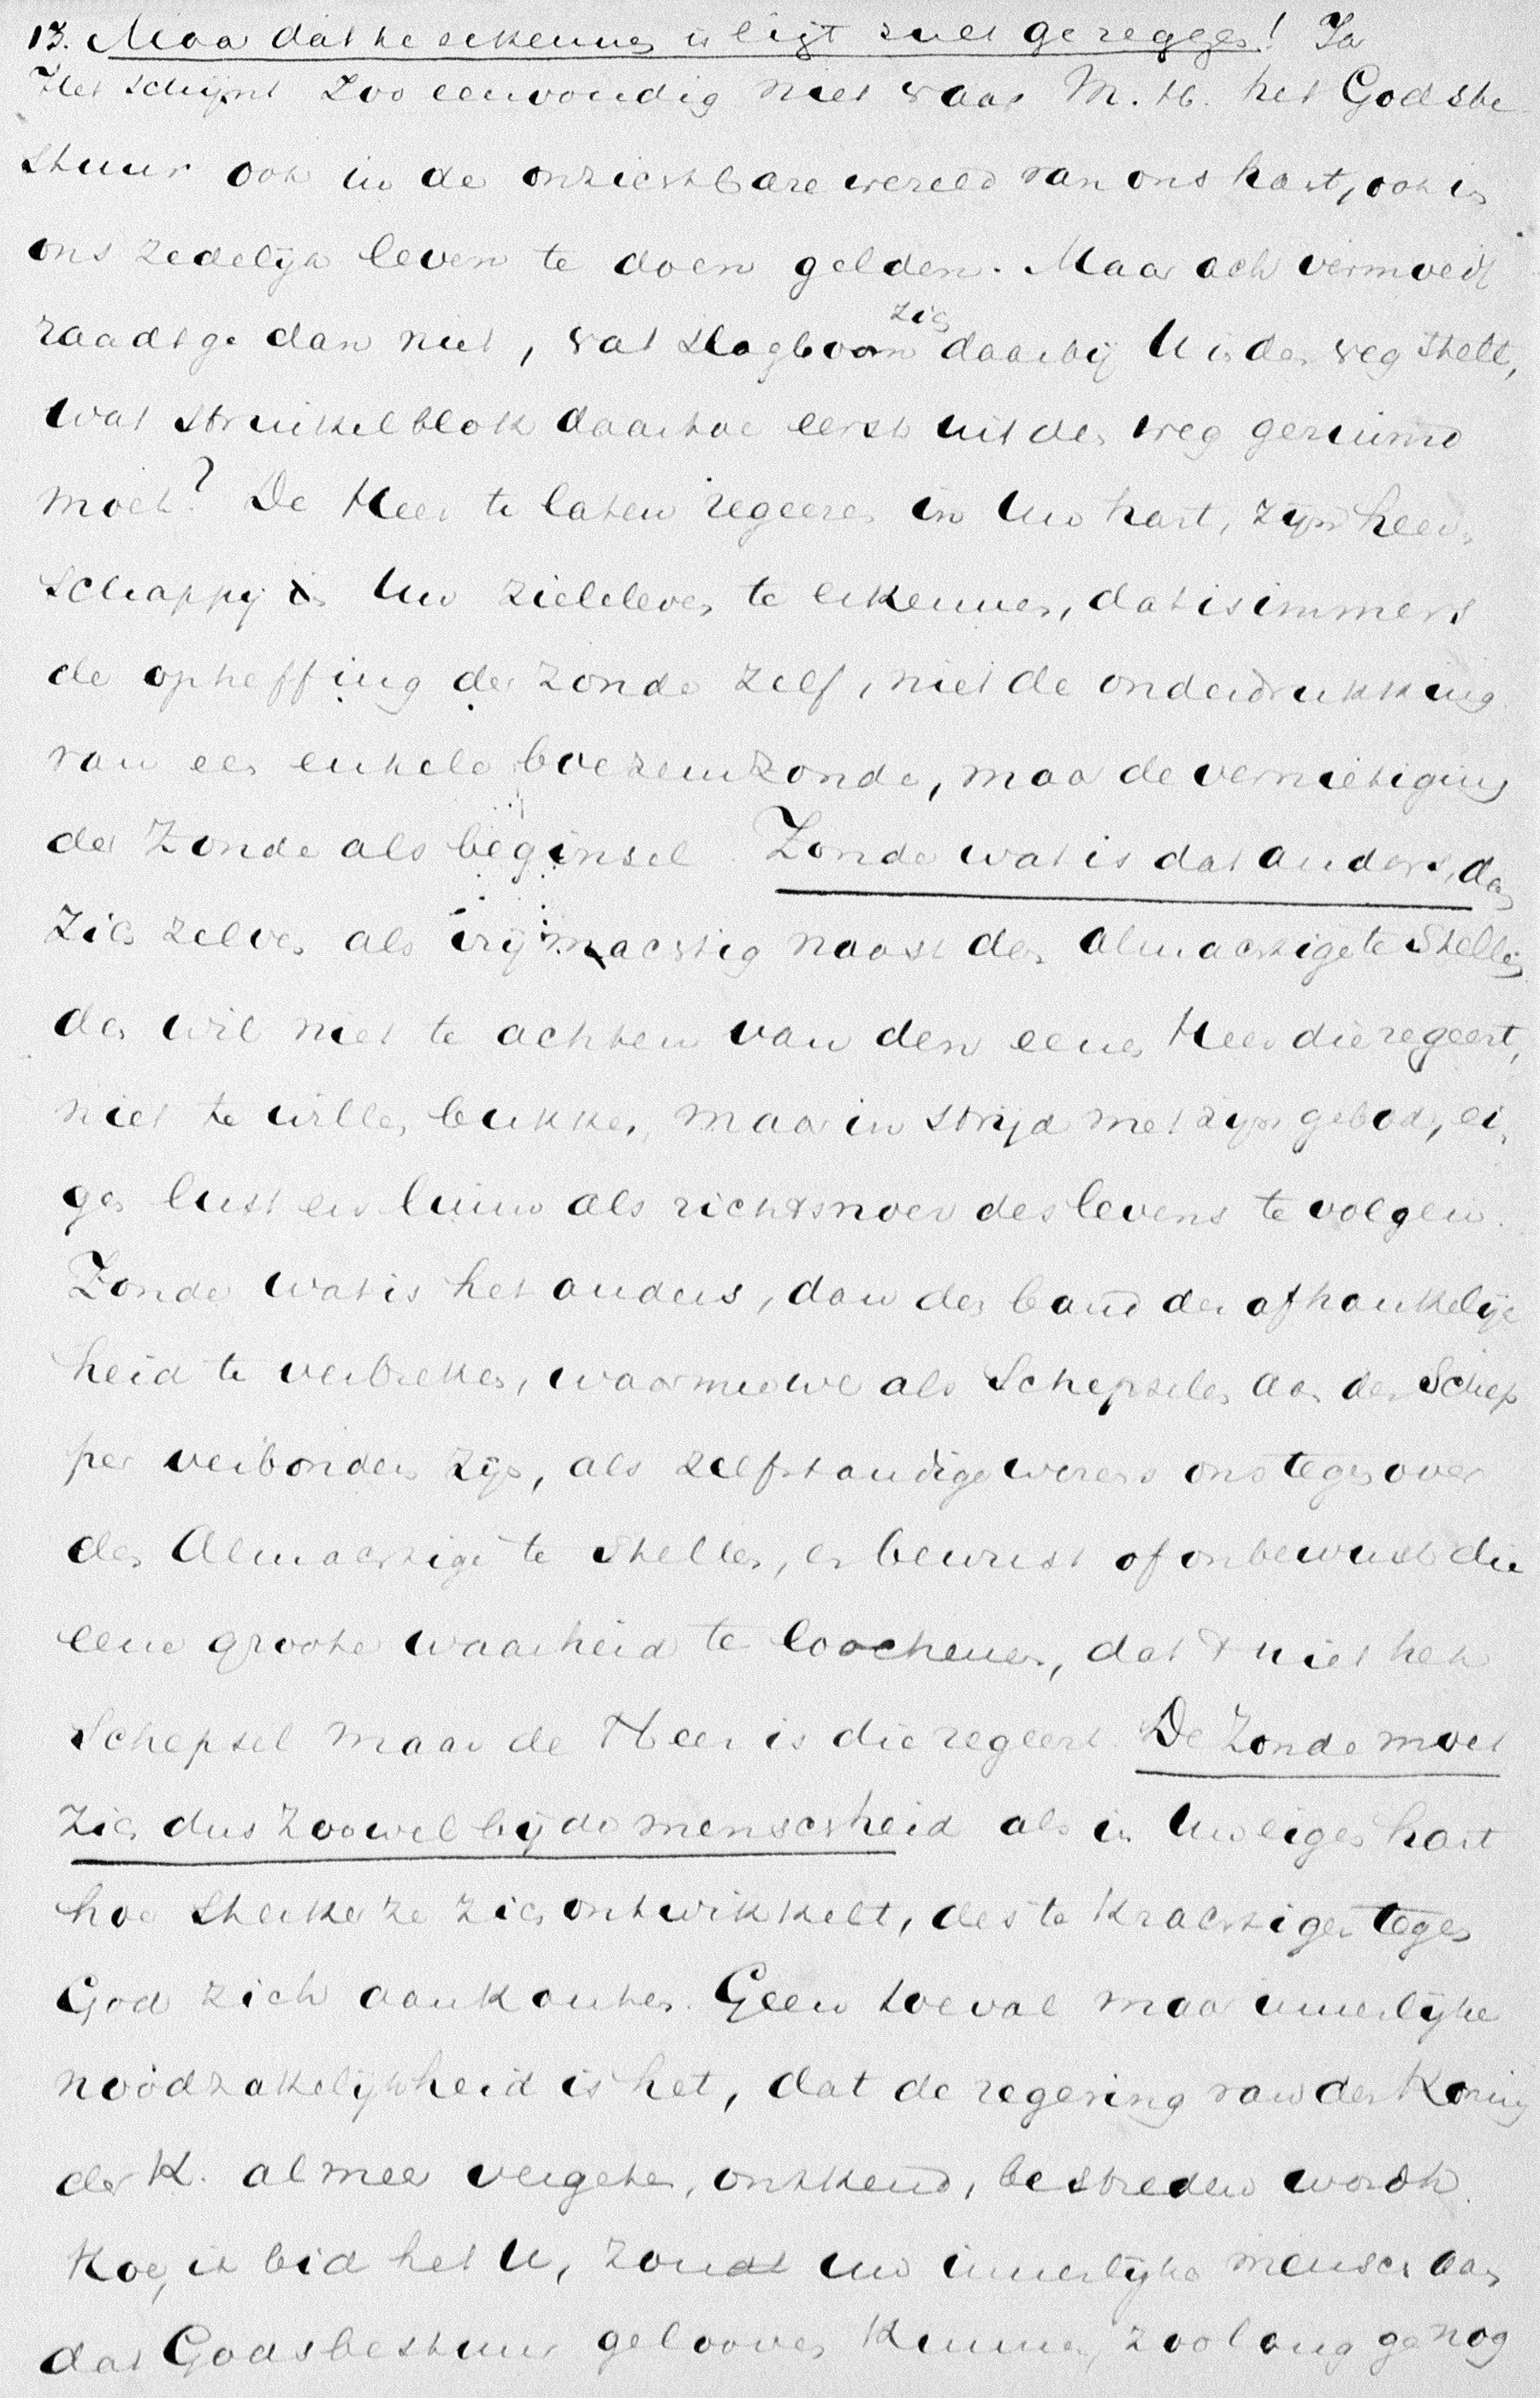 13. Maar dat te erkennen is ligt snel gezegges! Ja
Het schijnt zoo eenvoudig niet waar M. H. het Godsbe-
stuur ook in de onzichtbare wereld van ons hart, ook in
ons zedelijk leven te doen gelden. Maar ach vermoedt
raadt ge dan niet, wat slagboom zich daarbij U in den weg stelt,
wat struikelblok daartoe eerst uit den weg geruimd
moet? De Heer te laten regeeren in Uw hart, zijn heer-
schappij in Uw zieleleven te erkennen, dat is immers
de opheffing der zonde zelf, niet de onderdrukking
van een enkele boezemzonde, maar de vernietiging
der Zonde als beginsel. Zonde wat is dat anders, dan
zich zelven als vrijmachtig naast den Almachtige te stellen
den wil niet te achten van den eenen Heer die regeert,
niet te willen bukken, maar in strijd met zijn gebod, ei-
gen lust en luim als richtsnoer des levens te volgen.
Zonde wat is het anders, dan den band der afhankelijk
heid te verbreken, waarmede we als Schepselen aan den Schep
per verbonden zijn, als zelfstandige wezens ons tegenover
den Almachtige te stellen, en bewust of onbewust die
eene groote waarheid te loochenen, dat 't niet het
Schepsel maar de Heer is die regeert. De Zonde moet
zich dus zoowel bij de menschheid als in Uw eigen hart
hoe sterker ze zich ontwikkelt, des te krachtiger tegen
God zich aankanten. Geen toeval maar innerlijke
noodzakelijkheid is het, dat de regering van den Koning
der K. al meer vergeten, ontkend, bestreden wordt.
Hoe, ik bid het U, zoudt Uw innerlijke mensch aan
dat Godsbestuur gelooven kunnen, zoolang ge nog